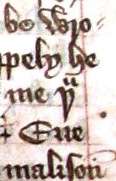 be wro-
pely he
me yͭ
Eue
malison